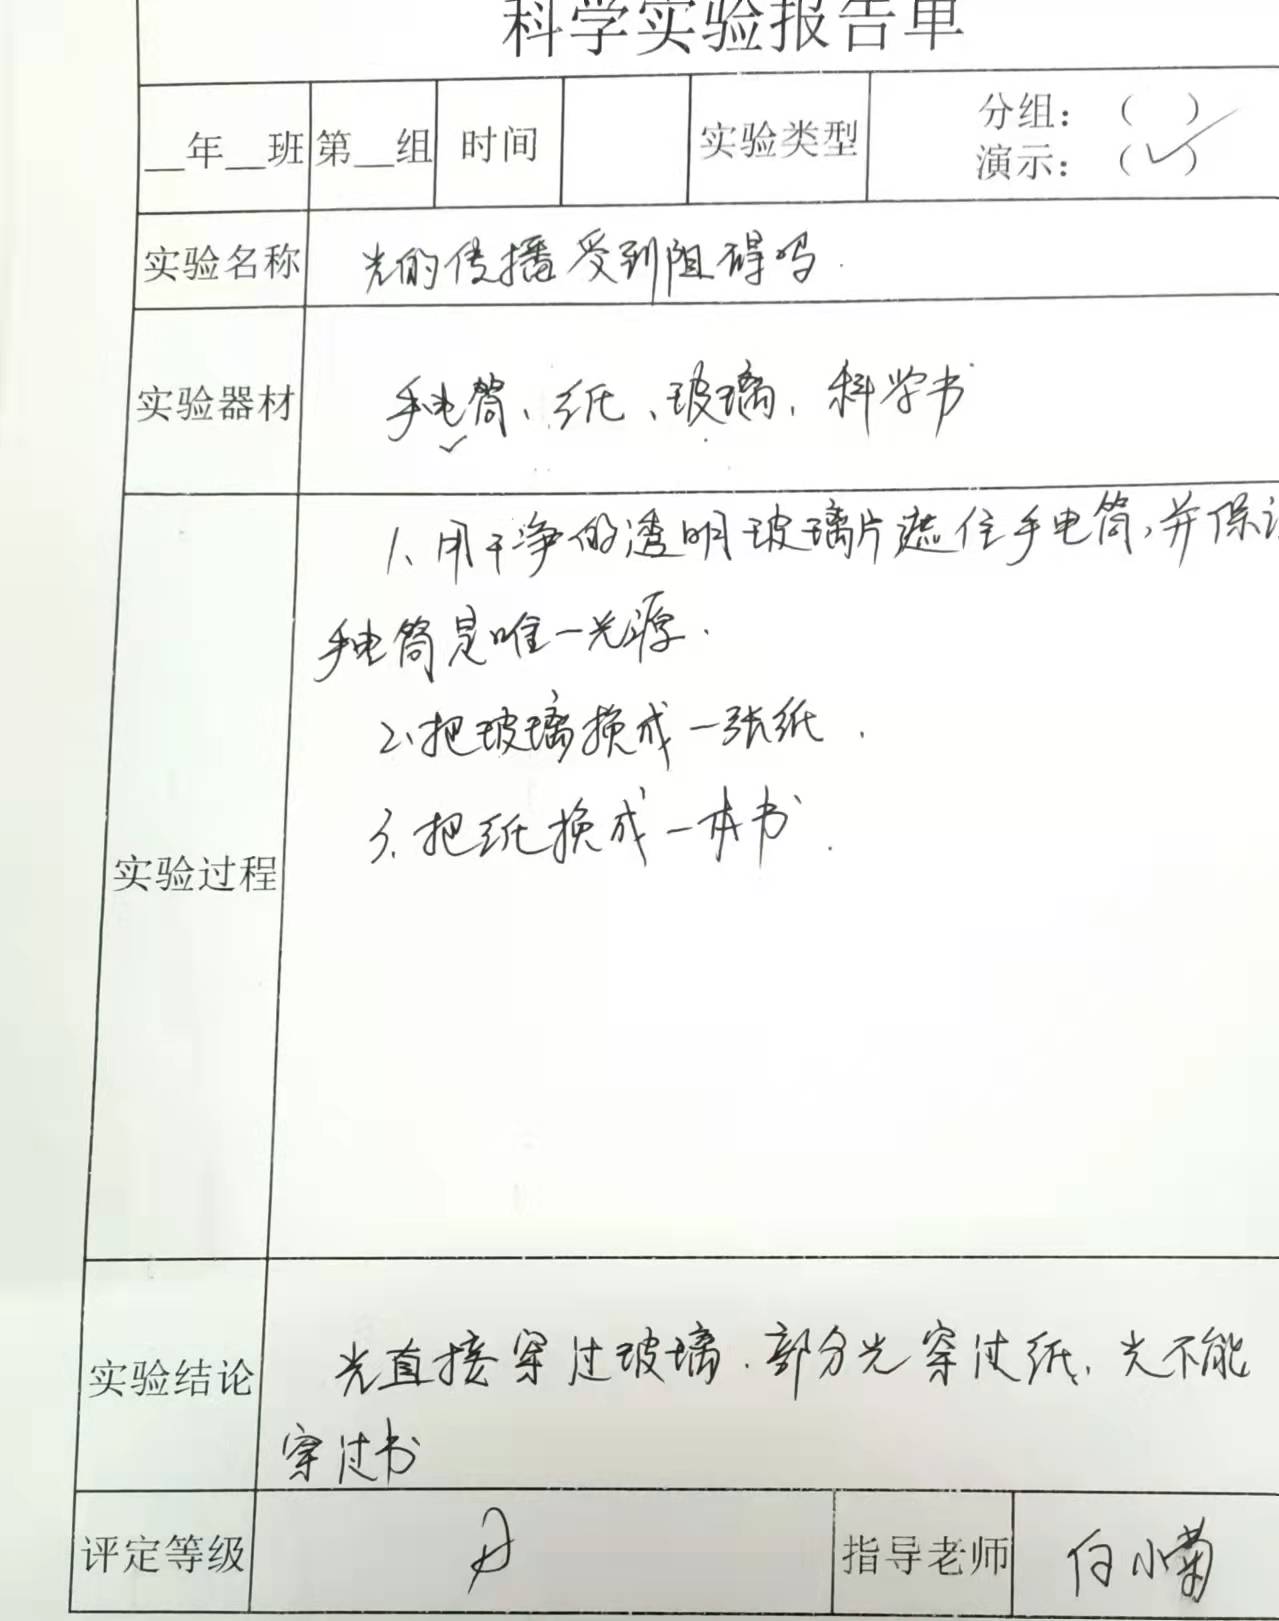 科学实验报告单
__年__班 第__组 时间 实验类型 分组：（ ）
演示：（✓）
实验名称 光的传播受到阻碍吗.
实验器材 手电筒、纸、玻璃、科学书
1、用干净的透明玻璃片遮住手电筒，并保证
手电筒是唯一光源.
2、把玻璃换成一张纸.
3、把纸换成一本书.
实验过程
实验结论 光直接穿过玻璃.部分光穿过纸，光不能
穿过书
评定等级 A 指导老师 付小菊